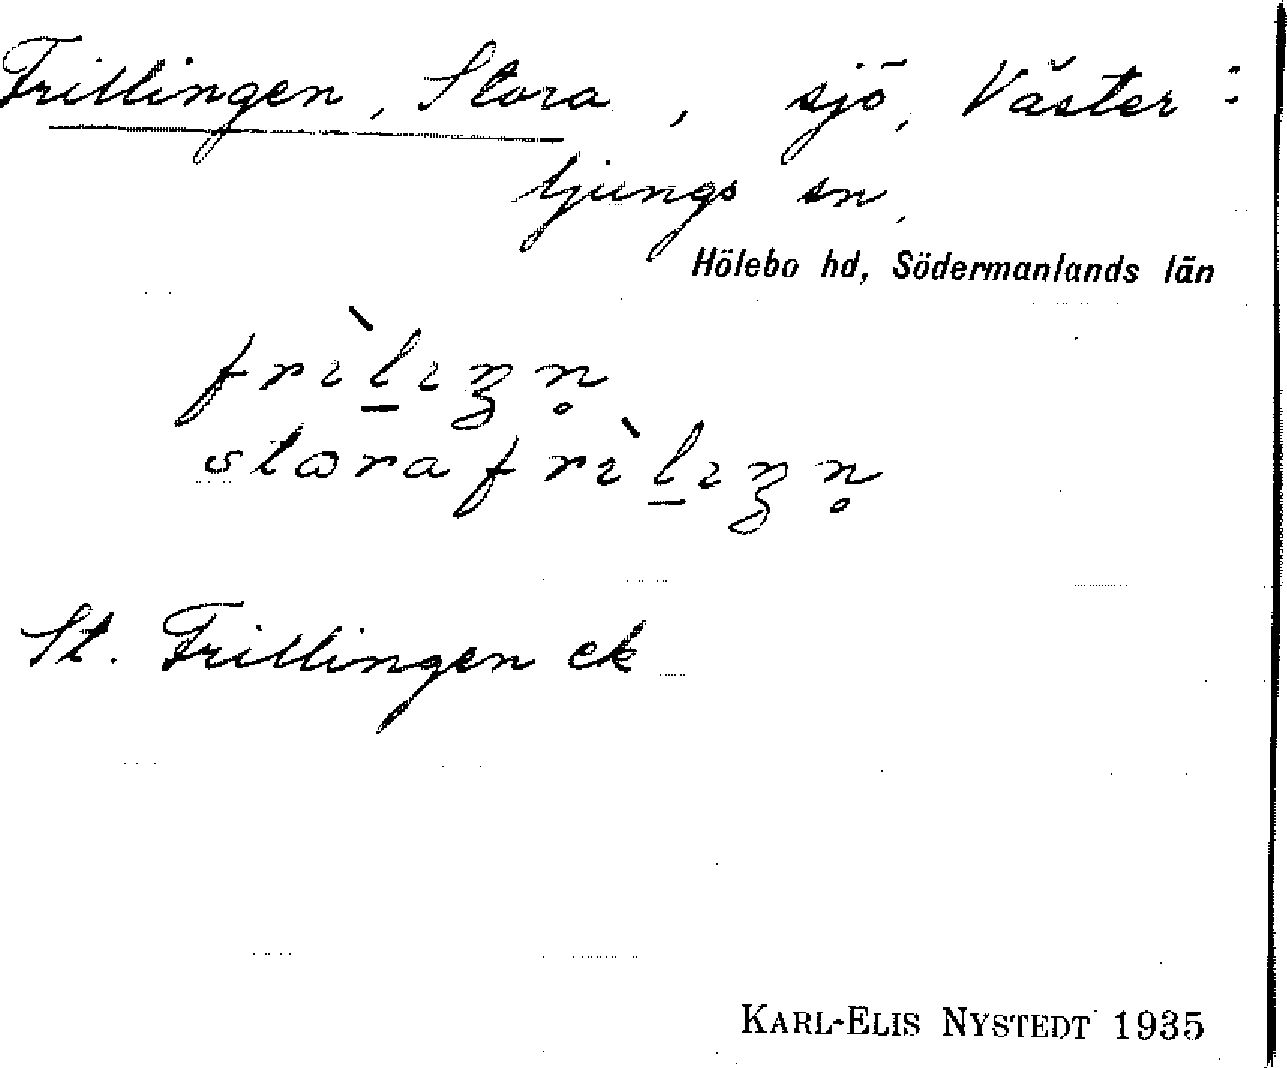 Frillingen, Stora, sjö, Väster-
ljungs sn,
Hölebo hd, Södermanlands län
frìl̲ıŋn̥
stɷrafrìl̲ıŋn̥
St. Frillingen ek
KARL-ELIS NYSTEDT 1935